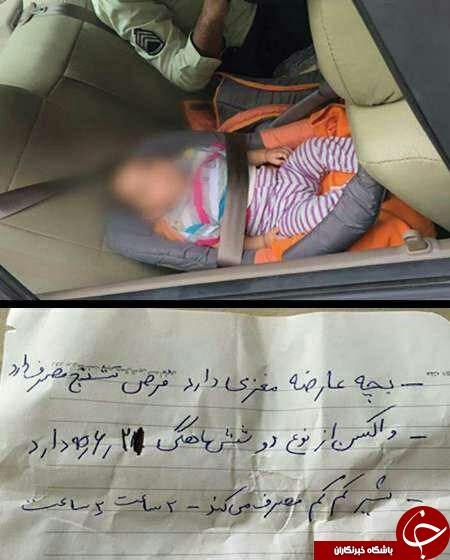 - بچه عارضه مغزی دارد قرص تشنج مصرف دارد
- واکسن از نوع دو شش ماهگی دارد
- شیر کم کم مصرف می کند - ۲ ساعت ۲ ساعت
باشگاه خبرنگاران